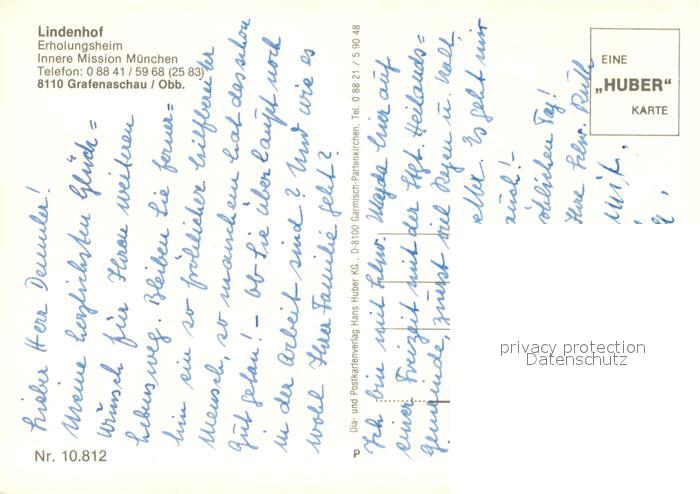 Lindenhof
Erholungsheim
Innere Mission München
Telefon: 0 88 41 / 59 68 (25 83)
8110 Grafenaschau / Obb.
Lieber Herr Demmler!
Meine herzlichsten Glück=
wünsch für Ihren weiteren
Lebensweg. Bleiben Sie ferner=
hin ein so fröhlicher hilfbereiter
Mensch, so manchem hat das schon
gut getan! - Ob Sie überhaupt noch
in der Arbeit sind? Und wie es
wohl Ihrer Familie geht?
Dia- und Postkartenverlag Hans Huber KG., D-8100 Garmisch-Partenkirchen, Tel. 0 88 21 / 5 90 48
Ich bin mit Schw. Magda hier auf
einer Freizeit mit der Kgt. Heilands=
gemeinde, zuerst viel Regen u. kalt,
Es geht mir
auch! -
Tag!
Ihre Schw. Ruth
EINE
„HUBER"
KARTE
privacy protection
Datenschutz
Nr. 10.812
P